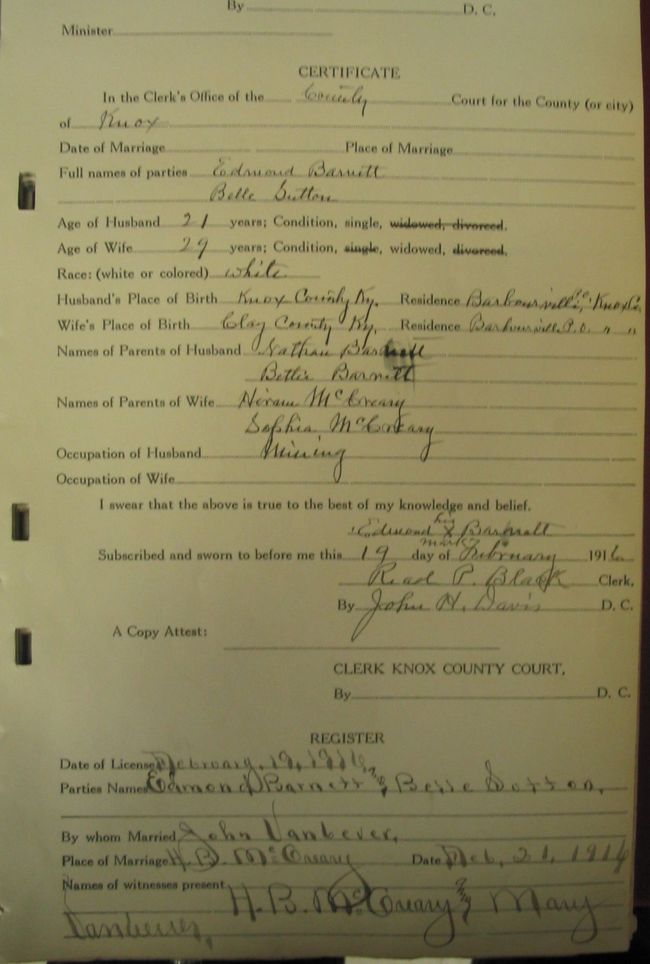 By D. C.
Minister
CERTIFICATE
In the Clerk's Office of the County Court for the County (or city)
of Knox
Date of Marriage Place of Marriage
Full names of parties Edmond Barnett
Belle Sutton
Age of Husband 21 years; Condition, single, widowed, divorced.
Age of Wife 29 years; Condition, single, widowed, divorced.
Race: (white or colored) white
Husband's Place of Birth Knox County Ky. Residence Barbourville, P.O. Knox Co,
Wife's Place of Birth Clay County Ky, Residence Barbourville P.O. " "
Names of Parents of Husband Nathan Barnett
Bettie Barnett
Names of Parents of Wife Hiram McCreary
Sophia McCreary
Occupation of Husband Mining
Occupation of Wife
I swear that the above is true to the best of my knowledge and belief.
his
Edmond X Barnett
mark
Subscribed and sworn to before me this 19 day of February 1916.
Read P. Black Clerk,
By John H. Davis D. C.
A Copy Attest:
CLERK KNOX COUNTY COURT,
By D. C.
REGISTER
Date of License February, 19, 1916,
Parties Names Edmond Barnett and Belle Sotton,
By whom Married John Vanbever,
Place of Marriage H. B. McCreary Date Feb, 21, 1916
Names of witnesses present H. B. McCreary and Mary
Vanbever,